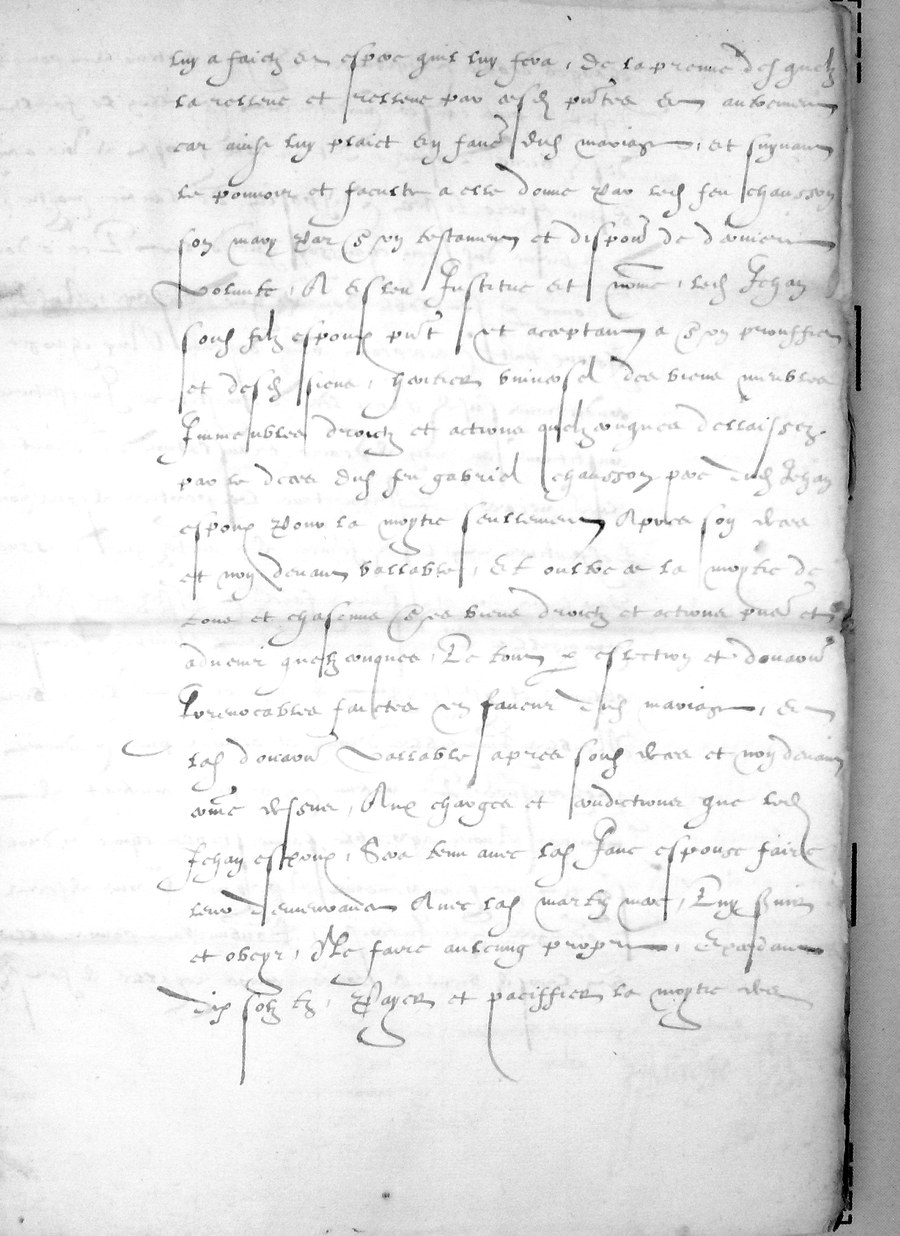 luy a faictz et espere quil luy fera, de la preuve desquelz
la relleve et relleve par cesd pntes et aultrement
car ainsi luy plaict En faveur dud mariage, et suyvant
le pouvoir et faculte a elle donne par led feu chausson
son mary par son testament et dispoon de derniere
volunte, A esleu Institue et nomme, led Jehan
sond filz espoux pnt et aceptant a son prouffict
et desd siens, heritier universel des biens meubles
Immeubles droictz et actions quelzconques dellaissez
par le deces dud feu gabriel chausson pere dud Jehan
espoux pour la moytie seullement Apres son deces
et non devant vallable, Et oultre ce la moytie de
tous et chascuns ses biens droictz et actions pns et
advenir quelzconques, Le tout p eslection et donaon
Irrevocables faictes en faveur dud mariage, et
lad donaon vallable apres sond deces et non devant
come dessus, Aux charges et condictions que led
Jehan espoux, Sera tenu avec lad Jane espouse faire
leur demeurance Avec lad marty mere, Luy servir
et obeyr, Ne faire aulcung propre, excedant
dix solz tz, Payer et paciffier la moytie des